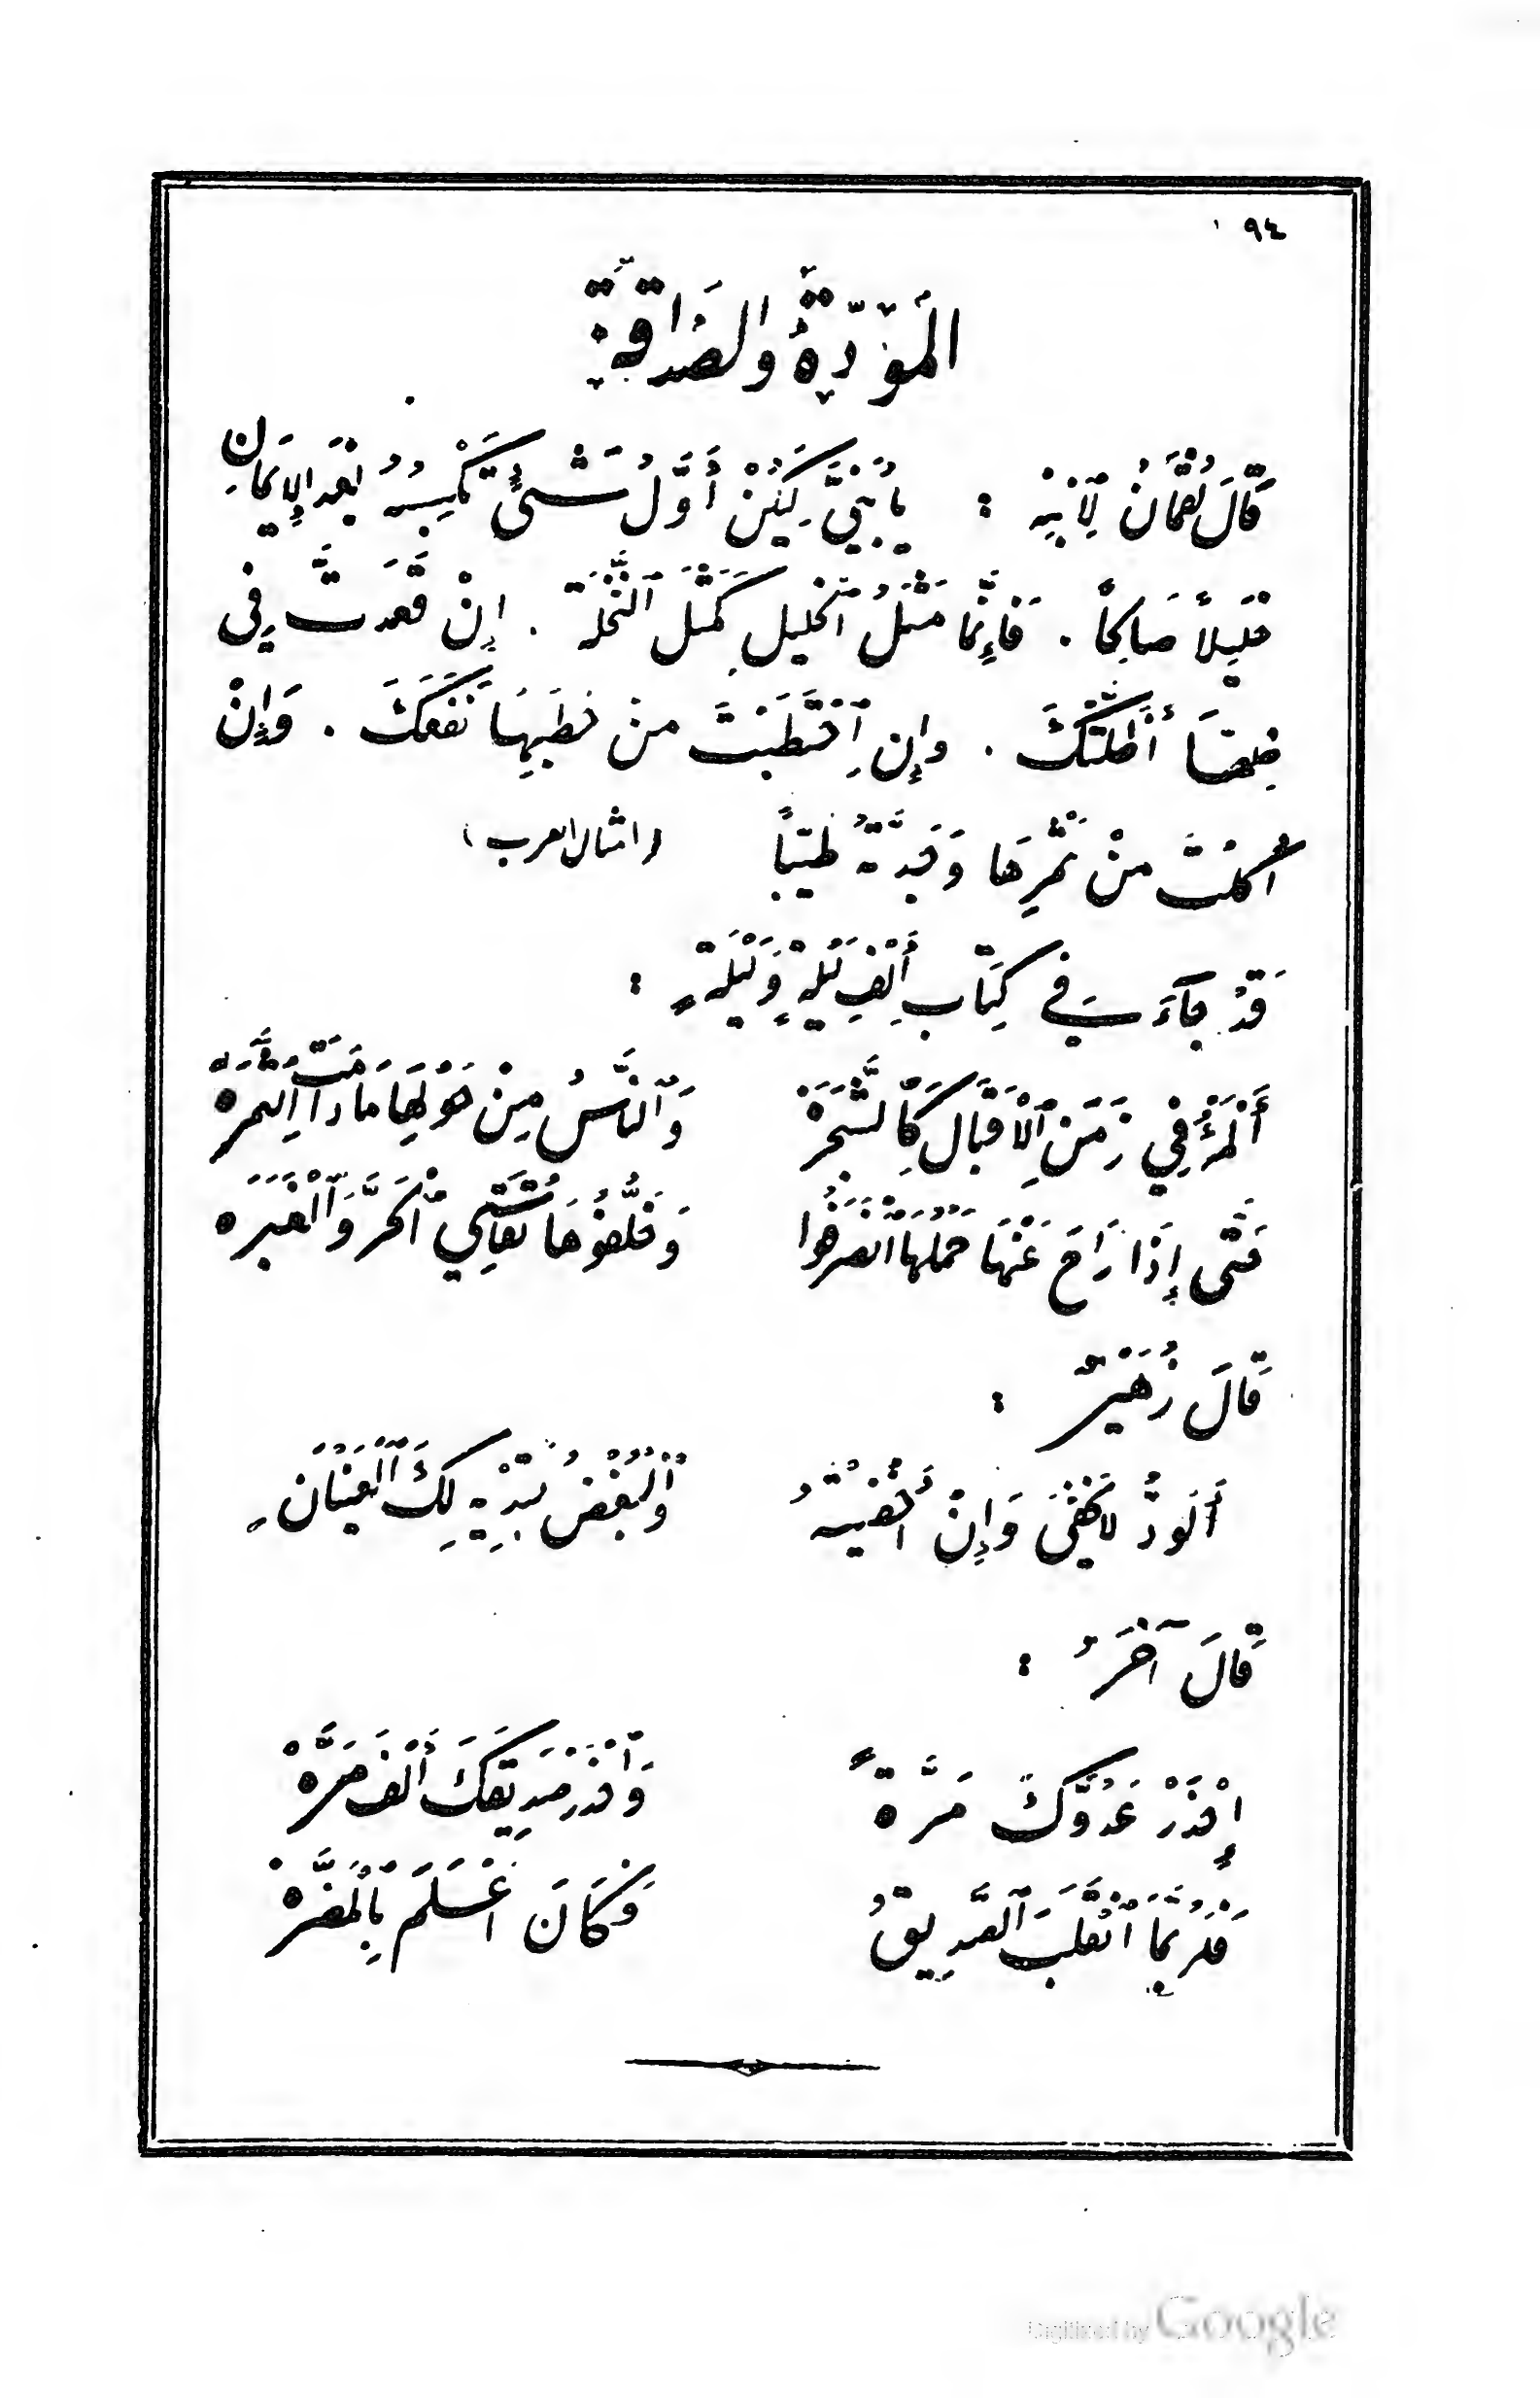 ٩٤
المَوَدَّةُ والصَّدَاقَةُ
قَالَ لُقْمَانُ لِٱبْنِهِ : يَا بُنَيَّ لِيَكُنْ أَوَّلُ شَيْءٍ تَكْسِبُهُ بَعْدَ الإِيمَانِ
خَلِيلاً صَالِحًا . فَإِنَّمَا مَثَلُ ٱلْخَلِيلِ كَمَثَلِ ٱلنَّخْلَةِ . إِنْ قَعَدتَّ فِي
ظِلِّهَا أَظَلَّتْكَ . وإِنِ ٱحْتَطَبْتَ مِنْ حَطَبِهَا نَفَعَكَ . وَإِنْ
أَكَلْتَ مِنْ ثَمَرِهَا وَجَدتَّهُ طَيِّبًا (امثال العرب)
قَدْ جَآءَ فِي كِتَابِ أَلْفِ لَيْلَةٍ وَلَيْلَةٍ :
أَلْمَرْءُ فِي زَمَنِ ٱلْإِقْبَالِ كَٱلشَّجَرَهْ وَٱلنَّاسُ مِنْ حَوْلِهَا مَا دَامَتِ ٱلثَّمَرَهْ
حَتَّى إِذَا رَاحَ عَنْهَا حَمْلُهَا ٱنْصَرَفُوا وَخَلَّفُوهَا تُقَاسِي ٱلْحَرَّ وَٱلْغَبَرَهْ
قَالَ زُهَيْرٌ :
أَلوُدُّ لَا يَخْفَى وَإِنْ أَخْفَيْتَهُ وَٱلْبُغْضُ تُبْدِيهِ لَكَ ٱلْعَيْنَانِ
قَالَ آخَرُ :
إِحْذَرْ عَدُوَّكَ مَرَّةً وَٱحْذَرْ صَدِيقَكَ أَلْفَ مَرَّهْ
فَلَرُبَّمَا ٱنْقَلَبَ ٱلصَّدِيقُ فَكَانَ أَعْلَمَ بِٱلْمَضَرَّهْ
Digitized by Google